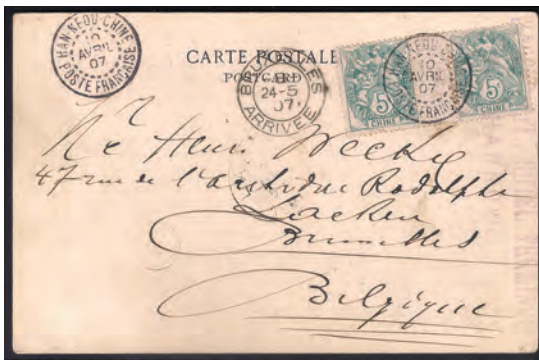 HAN-KEOU-CHINE
10
AVRIL
07
POSTE FRANÇAISE
CARTE POSTALE
POSTCARD
BRUXELLES
8
24-5
07
ARRIVÉE
HAN-KEOU-CHINE
10
AVRIL
07
POSTE FRANÇAISE
5
CHINE
5
CHINE
Mr
Henri
47 rue de l'archiduc Rodolphe
Laeken
Bruxelles
Belgique